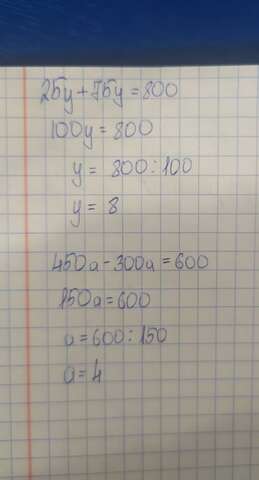 25y + 75y = 800
100y = 800
y = 800 : 100
y = 8
450a - 300a = 600
150a = 600
a = 600 : 150
a = 4